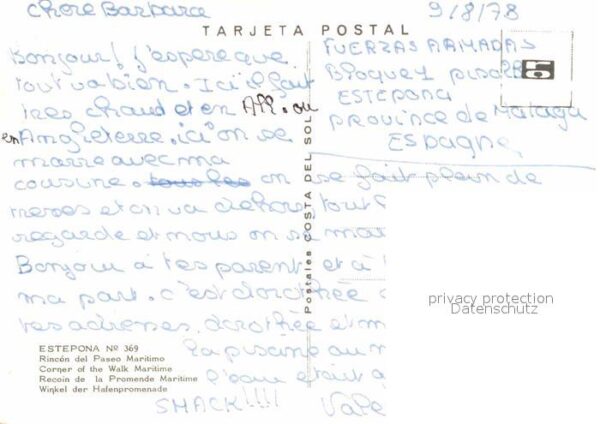 Chère Barbara
9/8/78
TARJETA POSTAL
Bonjour! j'espère que
tout va bien. Ici il fait
très chaud et en All. ou
en Angleterre. ici on se
marre avec ma
cousine. on se fait plein de
et on va dehors tout
regarde et nous on se mar
Bonjour à tes parent et à
ma part. c'est dorothée
tes adresses. dorothée et m
la piscine au m
l'eau était
SMACK!!!! Vale
FUERZAS ARMADAS
Bloque 1 piso
ESTEPONA
PROVINCE de Malaga
ESPagne
Postales COSTA DEL SOL
privacy protection
Datenschutz
ESTEPONA Nº 369
Rincón del Paseo Maritimo
Corner of the Walk Maritime
Recoin de la Promende Maritime
Winkel der Hafenpromenade